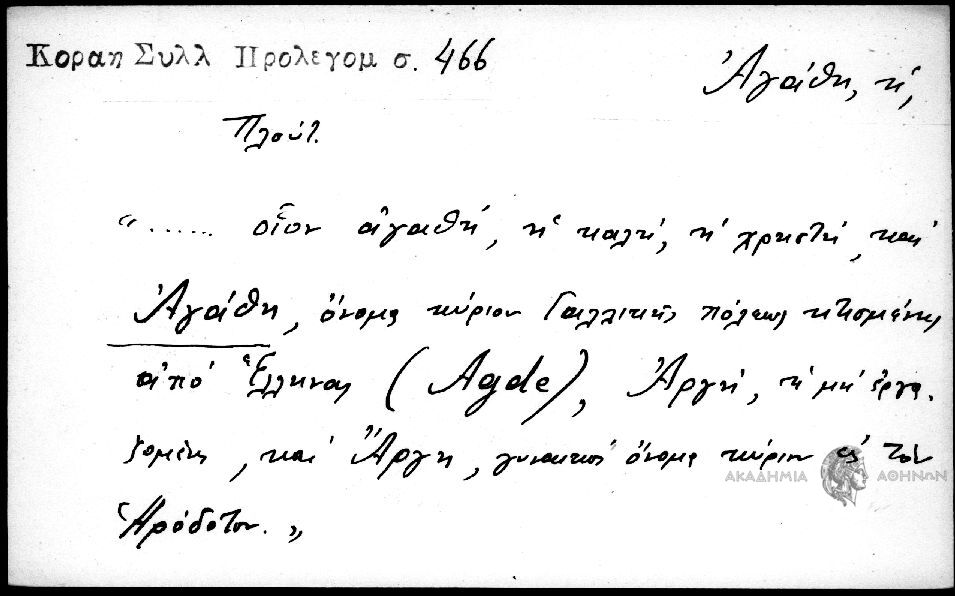 Κοραη Συλλ Προλεγομ σ. 466
Ἀγάθη, ἡ,
Πλούτ.
"...... οἷον ἀγαθή, ἡ καλή, ἡ χρηστή, καὶ
Ἀγάθη, ὄνομα κύριον Γαλλικῆς πόλεως κτισμένης
ἀπό Ἕλληνας (Agde), Ἀργή, ἡ μή ἐργα-
ζομένη, καί Ἄργη, γυναικός ὄνομα κύριον εἰς τόν
Ἡρόδοτον."
ΑΚΑΔΗΜΙΑ ΑΘΗΝΩΝ